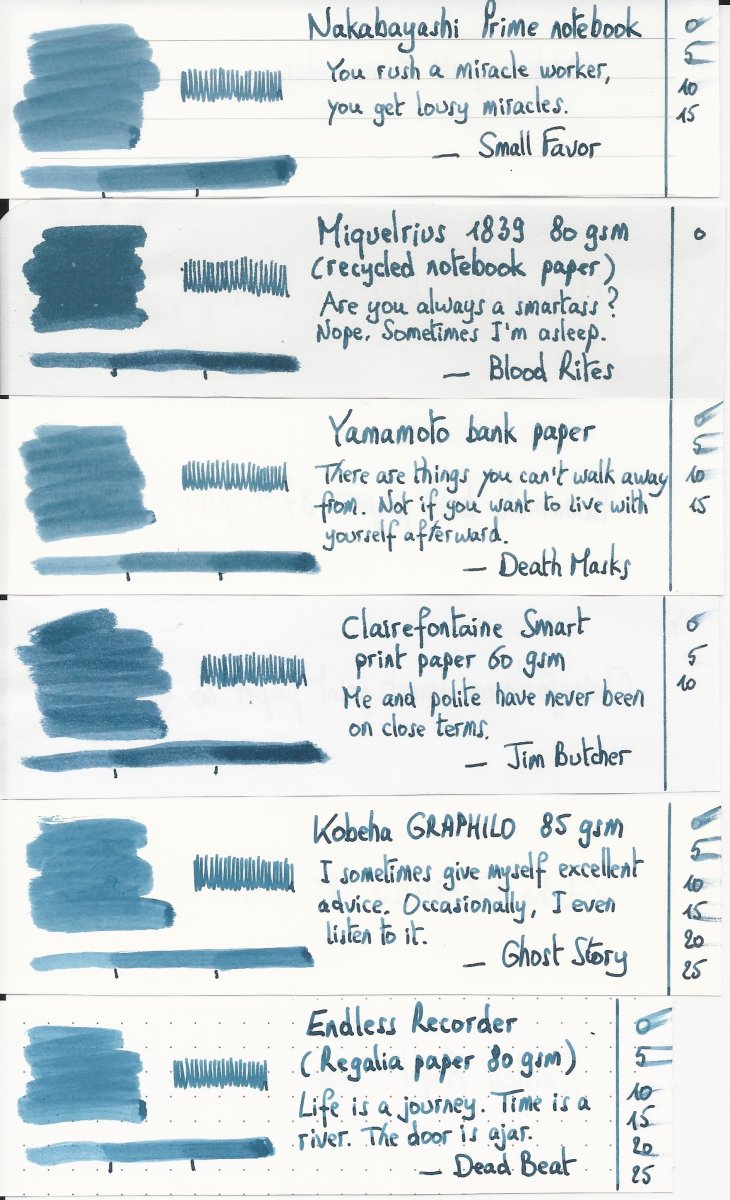 Nakabayashi Prime notebook
You rush a miracle worker,
you get lousy miracles.
— Small Favor
0
5
10
15
Miquelrius 1839 80 gsm
(recycled notebook paper)
Are you always a smartass?
Nope. Sometimes I'm asleep.
— Blood Rites
0
Yamamoto bank paper
There are things you can't walk away
from. Not if you want to live with
yourself afterward.
— Death Masks
0
5
10
15
Clairefontaine Smart
print paper 60 gsm
Me and polite have never been
on close terms.
— Jim Butcher
0
5
10
Kobeha GRAPHILO 85 gsm
I sometimes give myself excellent
advice. Occasionally, I even
listen to it.
— Ghost Story
0
5
10
15
20
25
Endless Recorder
(Regalia paper 80 gsm)
Life is a journey. Time is a
river. The door is ajar.
— Dead Beat
0
5
10
15
20
25